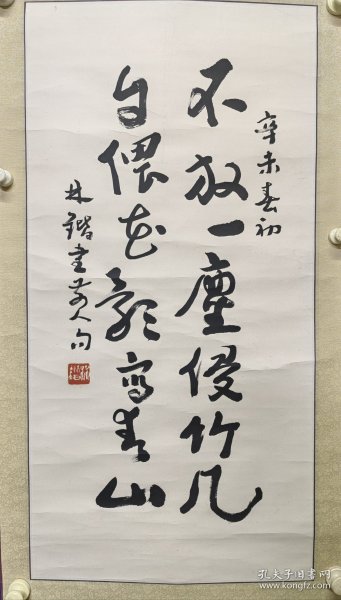 辛未春初
不放一塵侵竹几
自偎花影寫青山
林鍇書前人句
孔夫子旧书网
www.kongfz.com